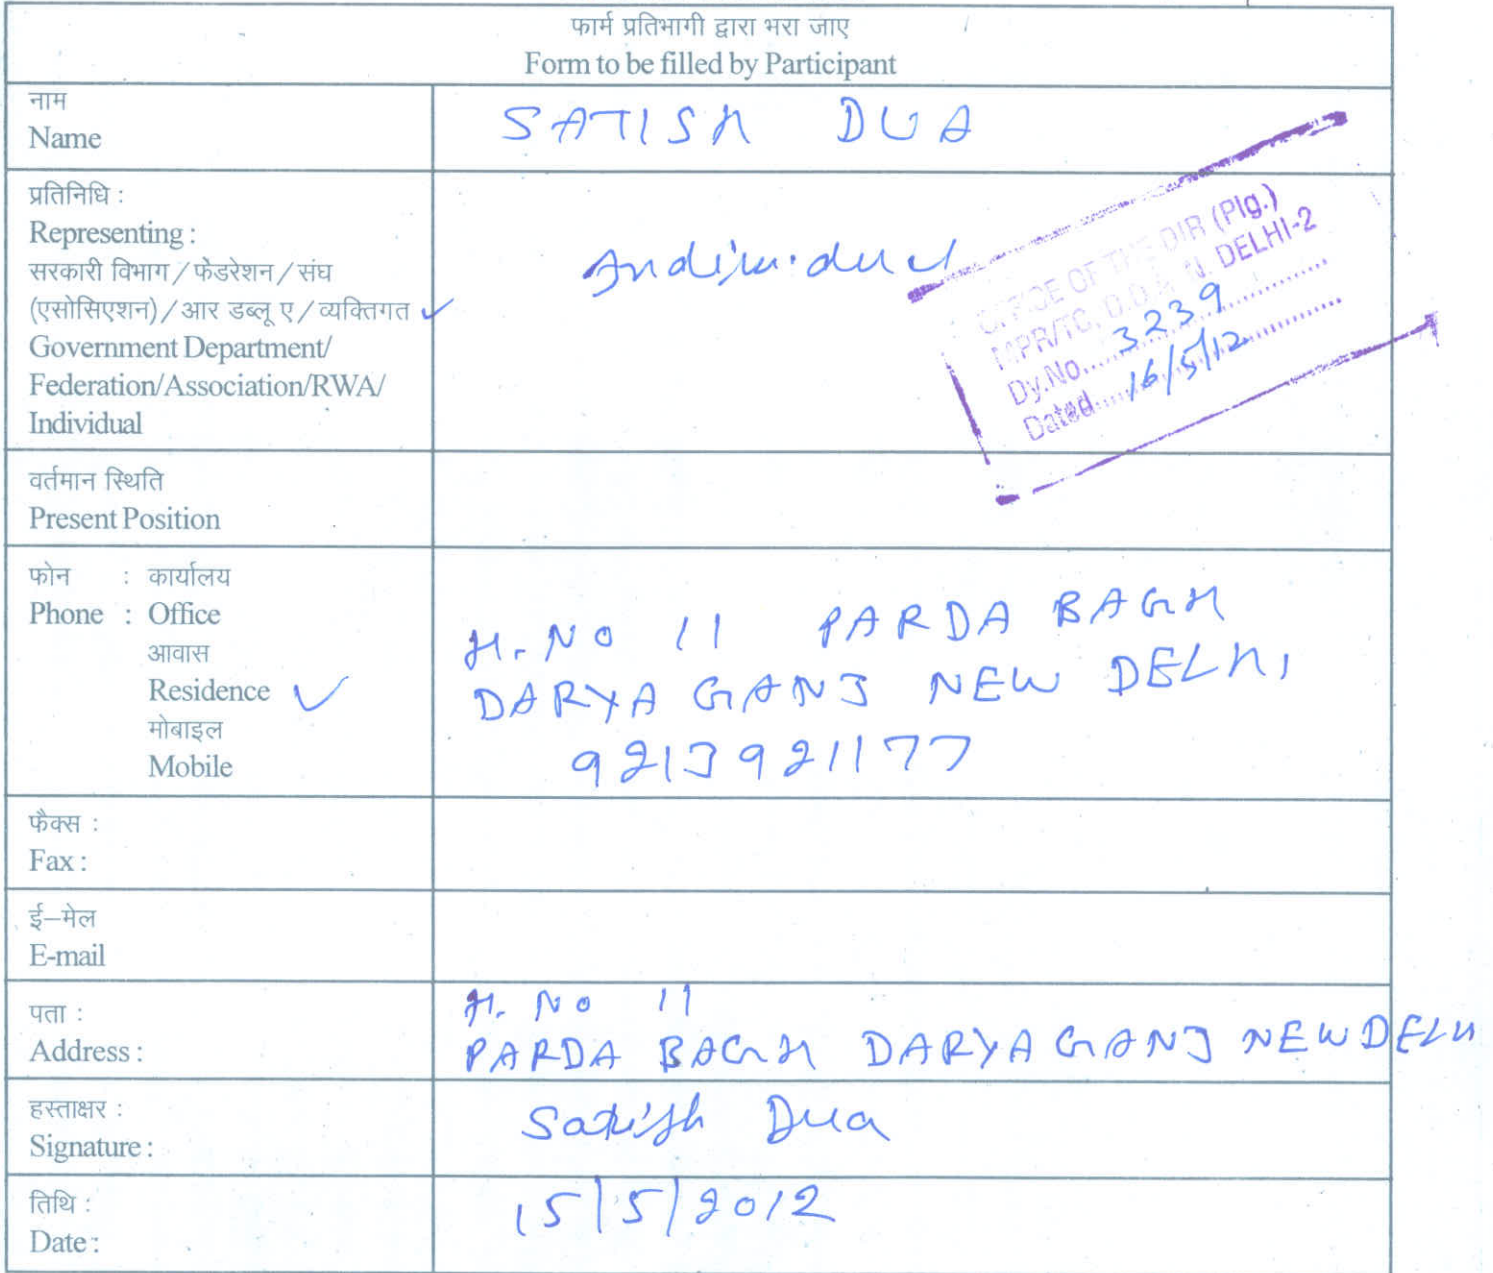 फार्म प्रतिभागी द्वारा भरा जाए
Form to be filled by Participant
नाम
Name
SATISH DUA
प्रतिनिधि :
Representing :
सरकारी विभाग / फेडरेशन / संघ
(एसोसिएशन) / आर डब्लू ए / व्यक्तिगत ✓
Government Department/
Federation/Association/RWA/
Individual
Individual
OFFICE OF THE DIR (Plg.)
MPR/TC, D.D.A. N. DELHI-2
Dy.No.....3239
Dated....16/5/12
वर्तमान स्थिति
Present Position
फोन : कार्यालय
Phone : Office
आवास
Residence ✓
मोबाइल
Mobile
H. NO 11 PARDA BAGH
DARYA GANJ NEW DELHI
9213921177
फैक्स :
Fax :
ई–मेल
E-mail
पता :
Address :
H. NO 11
PARDA BAGH DARYA GANJ NEW DELH
हस्ताक्षर :
Signature :
Satish Dua
तिथि :
Date :
15/5/2012